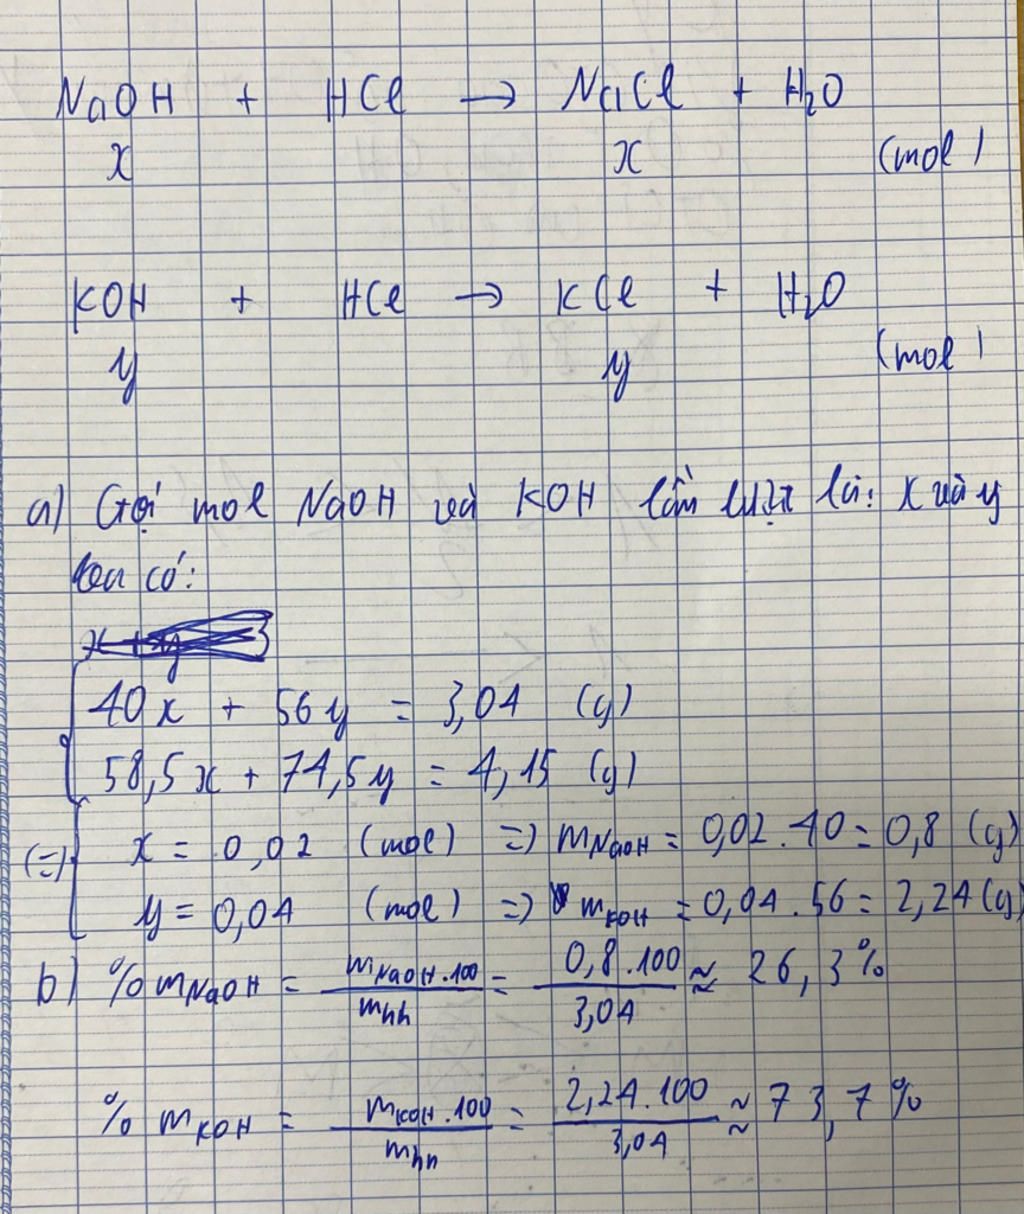 NaOH + HCl → NaCl + H₂O
x x (mol)
KOH + HCl → KCl + H₂O
y y (mol)
a) Gọi mol NaOH và KOH lần lượt là: x và y
ta có:
40x + 56y = 3,04 (g)
58,5x + 74,5y = 4,15 (g)
(=) x = 0,02 (mol) => mNaOH = 0,02 . 40 = 0,8 (g)
y = 0,04 (mol) => mKOH = 0,04 . 56 = 2,24 (g)
b) % mNaOH = mNaOH . 100 / mhh = 0,8 . 100 / 3,04 ≈ 26,3 %
% mKOH = mKOH . 100 / mhh = 2,24 . 100 / 3,04 ≈ 73,7 %